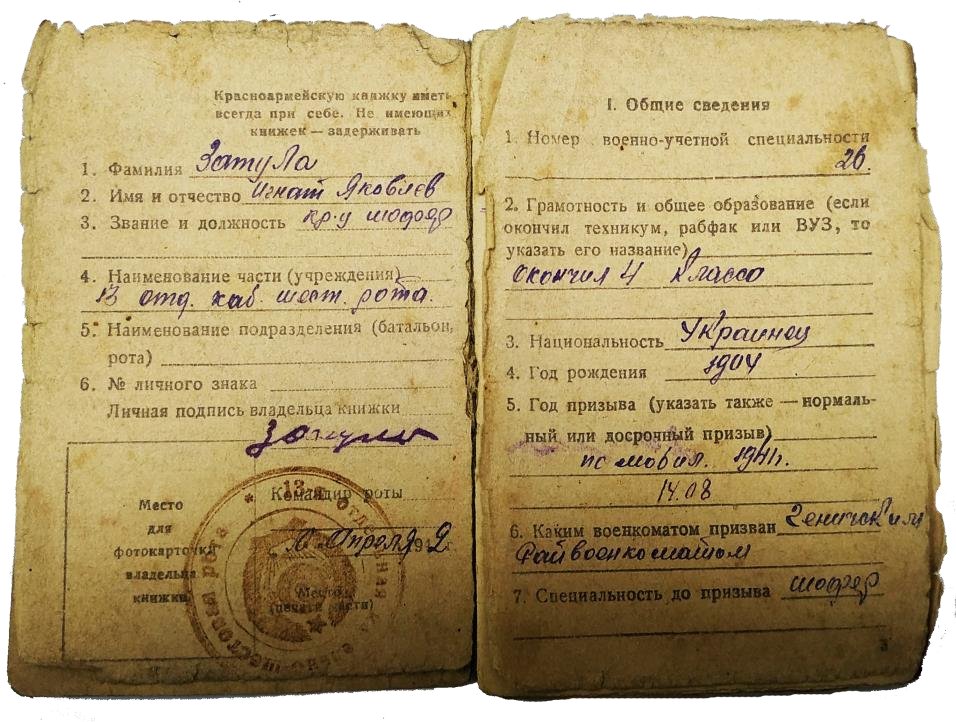 Красноармейскую книжку иметь
всегда при себе. Не имеющих
книжек — задерживать
1. Фамилия Затула
2. Имя и отчество Игнат Яковлев
3. Звание и должность кр-ц шофер
4. Наименование части (учреждения)
13 отд. каб. шест. рота.
5. Наименование подразделения (батальон,
рота)
6. № личного знака
Личная подпись владельца книжки
Затула
Место
для
фотокарточки
владельца
книжки
Командир роты
Апреля 194 2 г
Место
(печати части)
13-я отдельная кабельно-шестовая рота
I. Общие сведения
1. Номер военно-учетной специальности
26.
2. Грамотность и общее образование (если
окончил техникум, рабфак или ВУЗ, то
указать его название)
окончил 4 класса
3. Национальность Украинец
4. Год рождения 1904
5. Год призыва (указать также — нормаль-
ный или досрочный призыв)
по мобил. 1941г.
14.08
6. Каким военкоматом призван Геническим
Райвоенкоматом
7. Специальность до призыва шофер
3